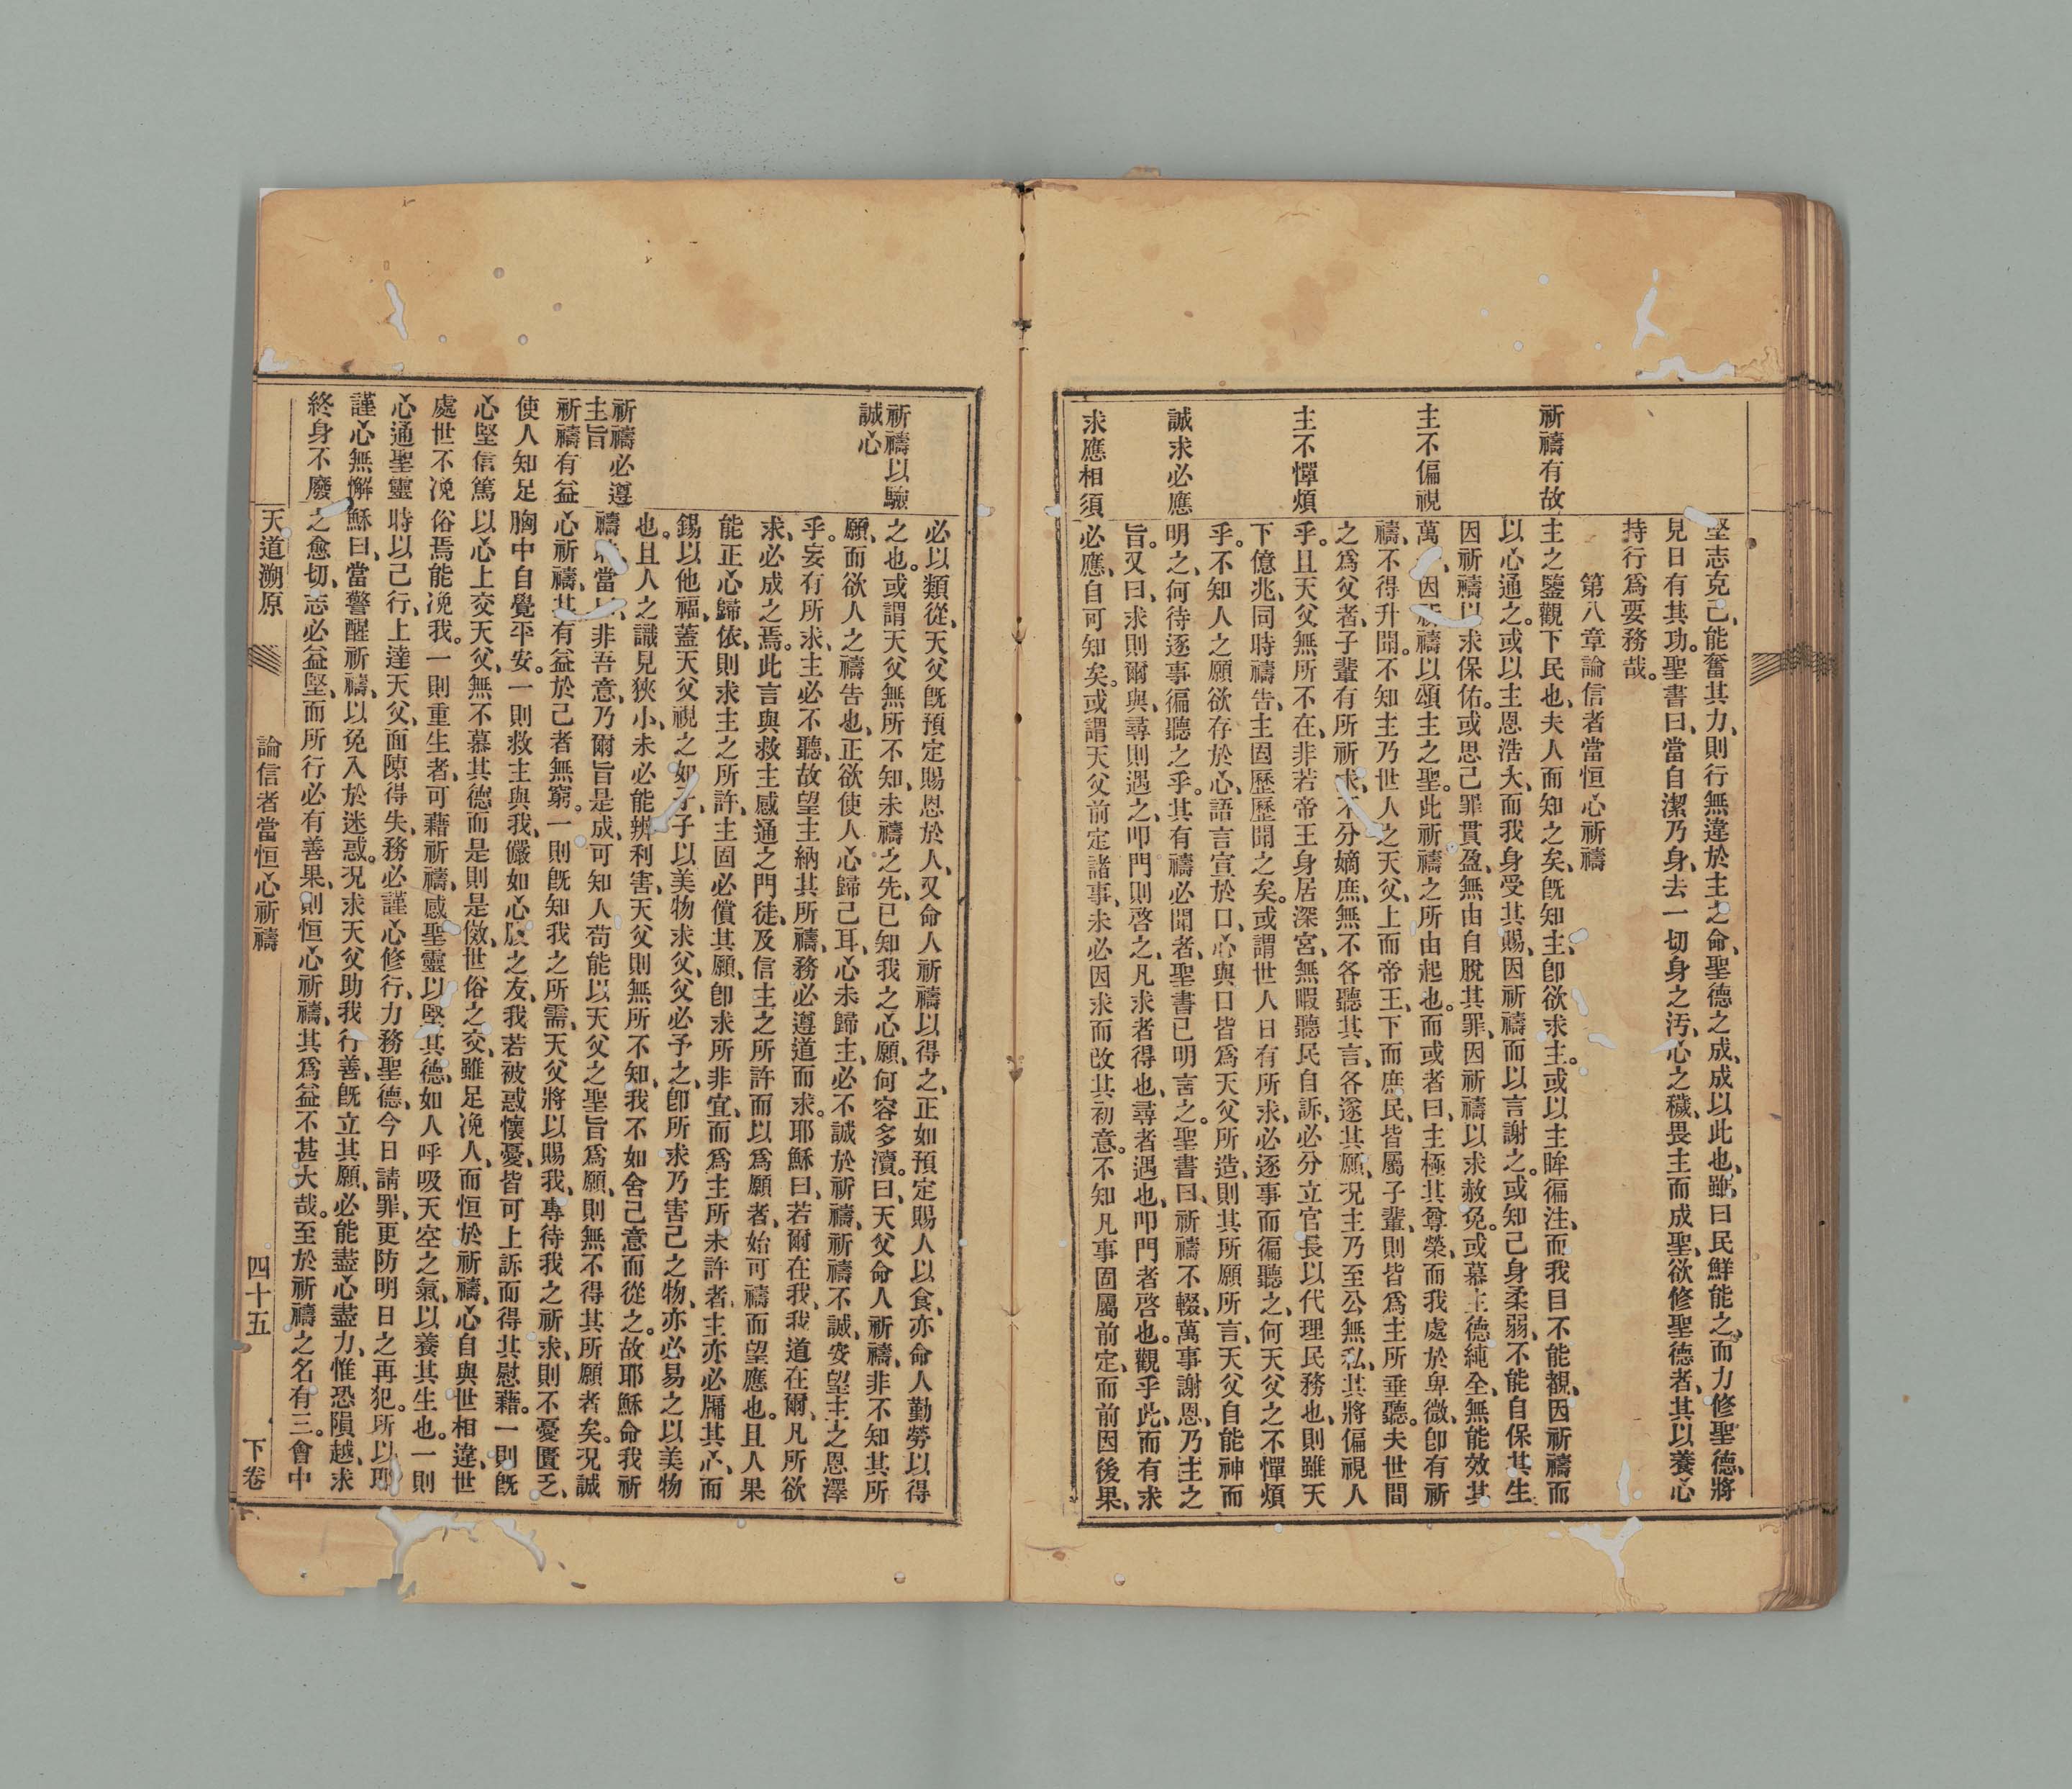 堅志克己、能奮其力、則行無違於主之命、聖德之成、成以此也、雖曰民鮮能之、而力修聖德、將
見日有其功。聖書曰、當自潔乃身、去一切身之汚、心之穢、畏主而成聖、欲修聖德者、其以養心
持行爲要務哉。
第八章論信者當恒心祈禱
祈禱有故
主之鑒觀下民也、夫人而知之矣、旣知主、卽欲求主。或以主眸徧注、而我目不能覩、因祈禱而
以心通之。或以主恩浩大、而我身受其賜、因祈禱而以言謝之。或知己身柔弱、不能自保其生
因祈禱以求保佑。或思己罪貫盈、無由自脫其罪、因祈禱以求赦免。或慕主德純全、無能效其
主不偏視
萬、因祈禱以頌主之聖。此祈禱之所由起也。而或者曰、主極其尊榮、而我處於卑微、卽有祈
禱、不得升聞。不知主乃世人之天父、上而帝王、下而庶民、皆屬子輩、則皆爲主所垂聽。夫世間
之爲父者、子輩有所祈求、不分嫡庶、無不各聽其言、各遂其願、況主乃至公無私、其將偏視人
主不憚煩
乎。且天父無所不在、非若帝王身居深宮、無暇聽民自訴、必分立官長以代理民務也、則雖天
下億兆、同時禱告、主固歷歷聞之矣。或謂世人日有所求、必逐事而徧聽之、何天父之不憚煩
乎。不知人之願欲存於心、語言宣於口、心與口皆爲天父所造、則其所願所言、天父自能神而
誠求必應
明之、何待逐事徧聽之乎。其有禱必聞者、聖書已明言之。聖書曰、祈禱不輟、萬事謝恩、乃主之
旨。又曰、求則爾與、尋則遇之、叩門則啓之、凡求者得也、尋者遇也、叩門者啓也。觀乎此、而有求
求應相須
必應、自可知矣。或謂天父前定諸事、未必因求而改其初意。不知凡事固屬前定、而前因後果、
必以類從、天父旣預定賜恩於人、又命人祈禱以得之、正如預定賜人以食、亦命人勤勞以得
祈禱以驗
誠心
之也。或謂天父無所不知、未禱之先、已知我之心願、何容多瀆。曰、天父命人祈禱、非不知其所
願、而欲人之禱告也、正欲使人心歸己耳、心未歸主、必不誠於祈禱、祈禱不誠、安望主之恩澤
乎。妄有所求、主必不聽、故望主納其所禱、務必遵道而求。耶穌曰、若爾在我、我道在爾、凡所欲
求、必成之焉。此言與救主感通之門徒、及信主之所許而以爲願者、始可禱而望應也。且人果
能正心歸依、則求主之所許、主固必償其願、卽求所非宜、而爲主所未許者、主亦必牖其心、而
錫以他福、蓋天父視之如子、子以美物求父、父必予之、卽所求乃害己之物、亦必易之以美物
也。且人之識見狹小、未必能辨利害、天父則無所不知、我不如舍己意而從之。故耶穌命我祈
祈禱必遵
主旨
禱當非吾意、乃爾旨是成、可知人苟能以天父之聖旨爲願、則無不得其所願者矣。況誠
祈禱有益
心祈禱、其有益於己者無窮。一則旣知我之所需、天父將以賜我、專待我之祈求、則不憂匱乏、
使人知足
胸中自覺平安。一則救主與我、儼如心腹之友、我若被惑懷憂、皆可上訴而得其慰藉。一則旣
心堅信篤
以心上交天父、無不慕其德而是則是傚、世俗之交、雖足浼人、而恒於祈禱、心自與世相違、世
處世不浼
俗焉能浼我。一則重生者、可藉祈禱、感聖靈以堅其德、如人呼吸天空之氣、以養其生也。一則
心通聖靈
時以己行、上達天父、面陳得失、務必謹心修行、力務聖德、今日請罪、更防明日之再犯。所以耶
謹心無懈
穌曰、當警醒祈禱、以免入於迷惑。況求天父助我行善、旣立其願、必能盡心盡力、惟恐隕越、求
終身不廢
之愈切、志必益堅、而所行必有善果、則恒心祈禱、其爲益不甚大哉。至於祈禱之名有三。會中
天道溯原　論信者當恒心祈禱　四十五　下卷